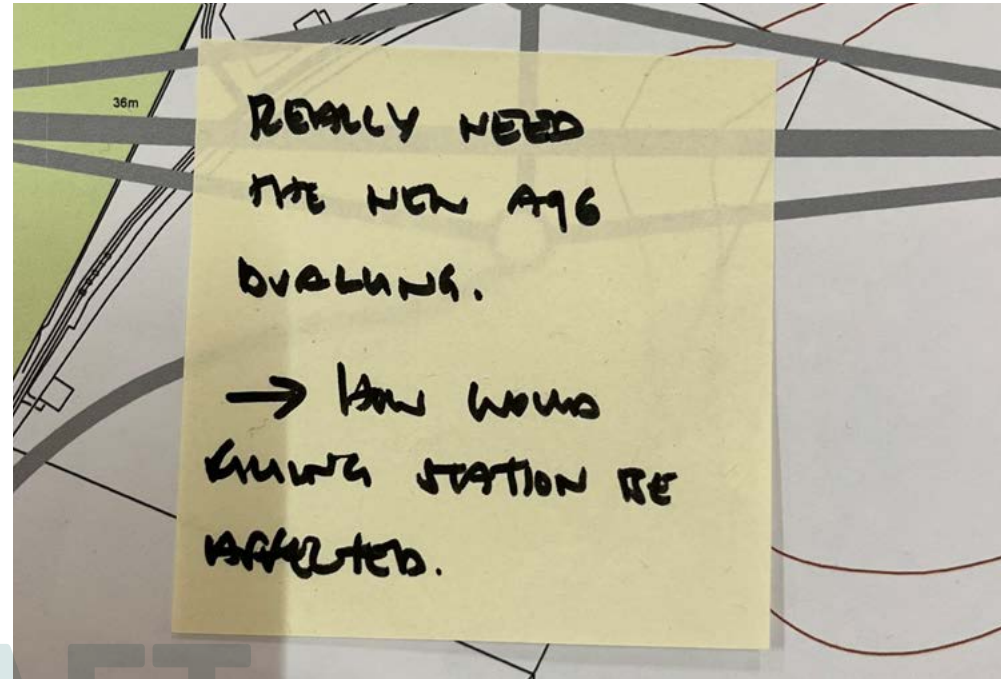 36m
REALLY NEED
THE NEW A96
DUALLING.
→ HOW WOULD
FILLING STATION BE
AFFECTED.